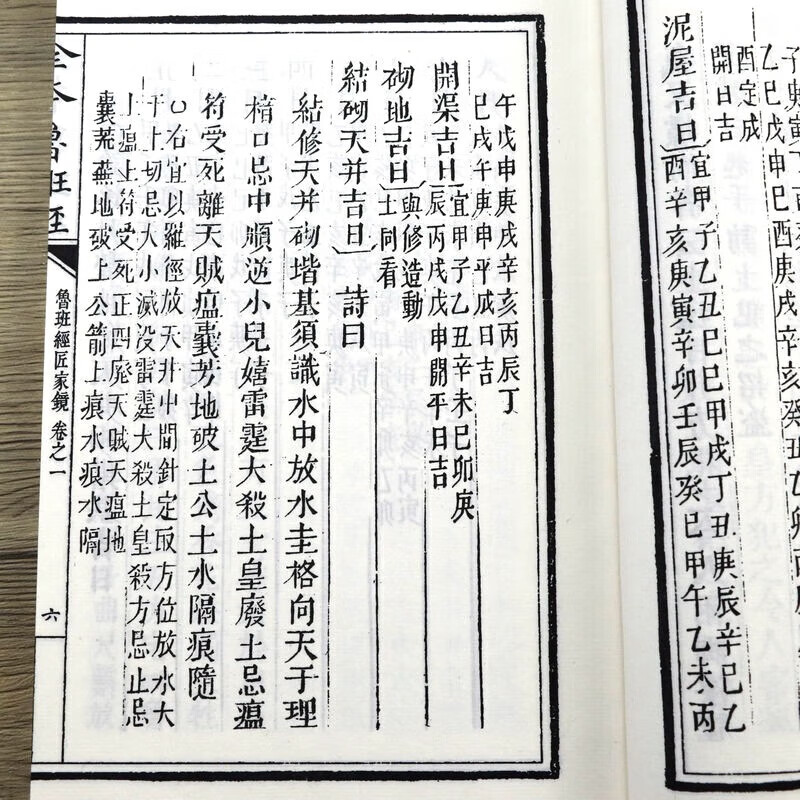 酉定成
開日吉
泥屋吉日 宜甲子乙丑己巳甲戌丁丑庚辰辛巳乙
酉辛亥庚寅辛卯壬辰癸巳甲午乙未丙
午戊申庚戌辛亥丙辰丁
巳戌午庚申平成日吉
開渠吉日 宜甲子乙丑辛未己卯庚
辰丙戌戊申開平日吉
砌地吉日 與修造動
土同看
結砌天井吉日 詩曰
結修天井砌堦基須識水中放水圭格向天干理
楫口忌中順逆小兒嬉雷霆大殺土皇廢土忌瘟
符受死離天賊瘟囊芳地破土公土水隔痕隨
○右宜以羅經放天井中間針定取方位放水大
干上切忌大小滅没雷霆大殺土皇殺方忌止忌
土瘟土符受死正四廢天賊天瘟地
囊荒蕪地破土公箭土痕水痕水隔
全本魯班經
魯班經匠家鏡 卷之一
六